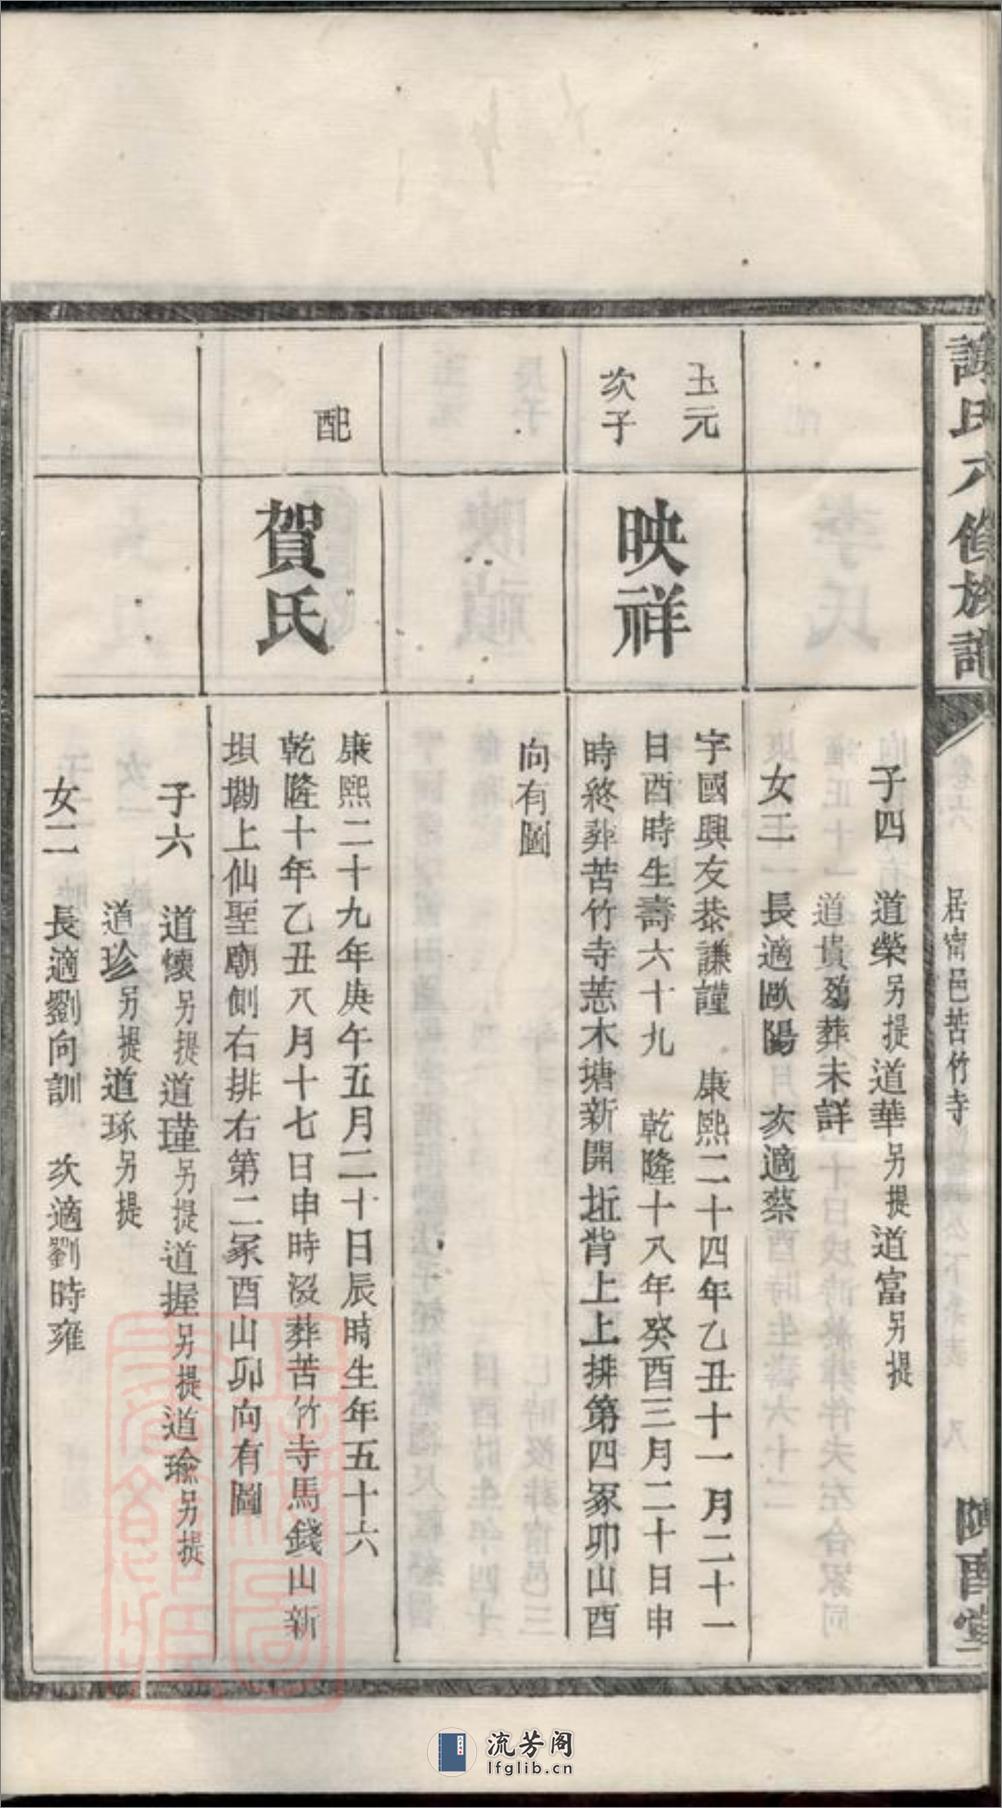 氏六修族譜
居甯邑苦竹寺
子四 道榮另提道華另提道富另提
道貴殤葬未詳
女二 長適歐陽 次適蔡
玉元
次子
映祥
字國興友恭謙謹 康熙二十四年乙丑十一月二十一
日酉時生壽六十九 乾隆十八年癸酉三月二十日申
時終葬苦竹寺葱木塘新開坵背上上排第四冢卯山酉
向有圖
配
賀氏
康熙二十九年庚午五月二十日辰時生年五十六
乾隆十年乙丑八月十七日申時沒葬苦竹寺馬錢山新
垻塝上仙聖廟側右排右第二冢酉山卯向有圖
子六 道懷另提道瑾另提道握另提道瑜另提
道珍另提道琢另提
女二 長適劉向訓 次適劉時雍
流芳阁
lfglib.cn